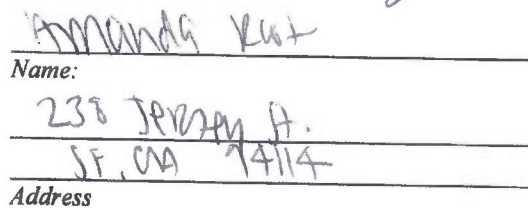 Amanda
Name:
238 Jersey St.
SF, CA 94114
Address